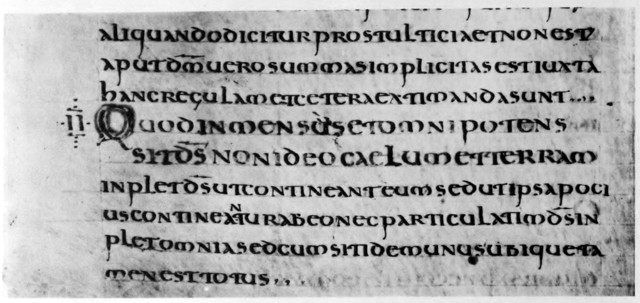 aliquandodiciturprostulticiaetnonest
aputdm̄uerosummasimplicitasestiuxta
hancregulametceteraextimandasunt....
·II· Quodinmensusetomnipotens
sitds̄nonideocaelumetterram
inpletds̄utcontineanteumsedutipsapoci
uscontineanturabeonecparticulatimds̄in
pletomniasedcumsitidemunusubiqueta
menesttotus..